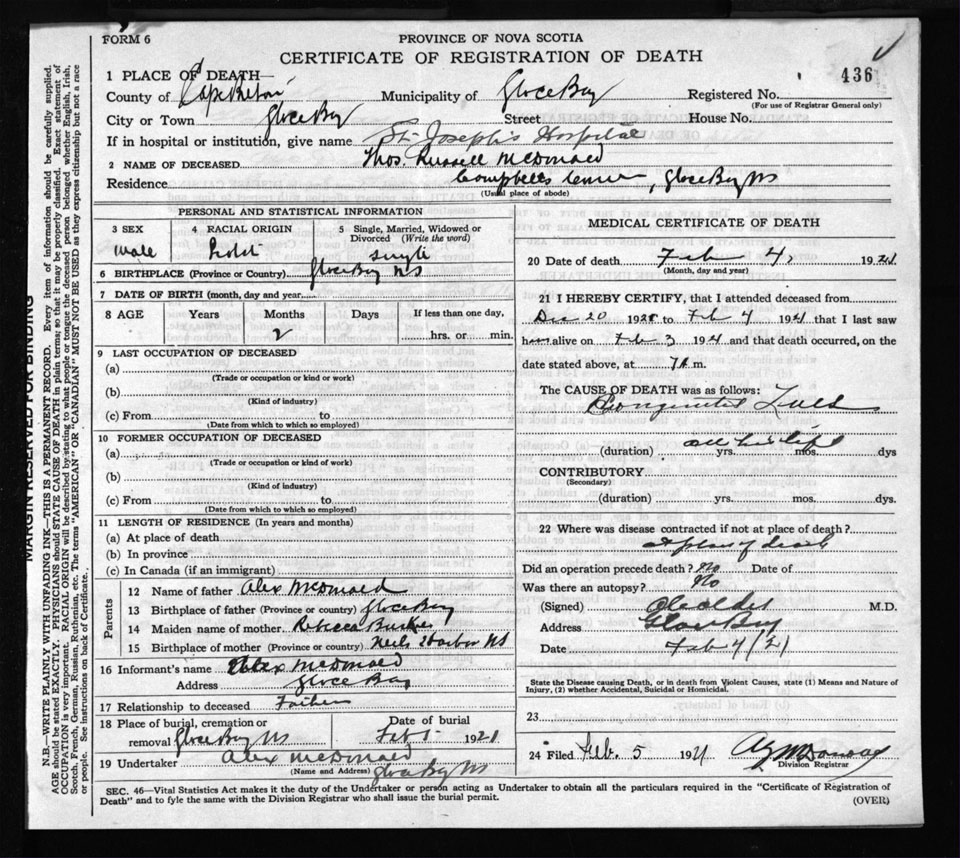 FORM 6
PROVINCE OF NOVA SCOTIA
CERTIFICATE OF REGISTRATION OF DEATH
436
1 PLACE OF DEATH—
County of Cape Breton Municipality of Glace Bay Registered No.
(For use of Registrar General only)
City or Town Glace Bay Street House No.
If in hospital or institution, give name St. Joseph's Hospital
2 NAME OF DECEASED Thos. Russell McDonald
Residence Campbells , Glace Bay NS
(Usual place of abode)
PERSONAL AND STATISTICAL INFORMATION
3 SEX 4 RACIAL ORIGIN 5 Single, Married, Widowed or Divorced (Write the word)
Male single
6 BIRTHPLACE (Province or Country) Glace Bay NS
7 DATE OF BIRTH (month, day and year
8 AGE Years Months Days If less than one day,
2 hrs. or min.
9 LAST OCCUPATION OF DECEASED
(a)
(Trade or occupation or kind or work)
(b)
(Kind of industry)
(c) From to
(Date from which to which so employed)
10 FORMER OCCUPATION OF DECEASED
(a)
(Trade or occupation or kind of work)
(b)
(Kind of industry)
(c) From to
(Date from which to which so employed)
11 LENGTH OF RESIDENCE (In years and months)
(a) At place of death
(b) In province
(c) In Canada (if an immigrant)
Parents
12 Name of father Alex McDonald
13 Birthplace of father (Province or country) Glace Bay
14 Maiden name of mother Rebecca
15 Birthplace of mother (Province or country) Neils Harbor NS
16 Informant's name Alex McDonald
Address Glace Bay
17 Relationship to deceased Father
18 Place of burial, cremation or removal Glace Bay NS
Date of burial Feb 5 1921
19 Undertaker Alex McDonald
(Name and Address) Glace Bay NS
MEDICAL CERTIFICATE OF DEATH
20 Date of death Feb 4, 1921
(Month, day and year)
21 I HEREBY CERTIFY, that I attended deceased from
Dec 20 192 to Feb 4 1921 that I last saw
h alive on Feb 3 1921 and that death occurred, on the
date stated above, at 7 A m.
The CAUSE OF DEATH was as follows:
Congenital Lues
all his life
(duration) yrs. mos. dys
CONTRIBUTORY
(Secondary)
(duration) yrs. mos. dys.
22 Where was disease contracted if not at place of death?
at place of death
Did an operation precede death? No Date of
Was there an autopsy? No
(Signed) M.D.
Address Glace Bay
Date Feb 4/21
State the Disease causing Death, or in death from Violent Causes, state (1) Means and Nature of Injury, (2) whether Accidental, Suicidal or Homicidal.
23
24 Filed Feb. 5 1921
Division Registrar
SEC. 46—Vital Statistics Act makes it the duty of the Undertaker or person acting as Undertaker to obtain all the particulars required in the "Certificate of Registration of
Death" and to fyle the same with the Division Registrar who shall issue the burial permit.
(OVER)
MARGIN RESERVED FOR BINDING
N.B.—WRITE PLAINLY WITH UNFADING INK—THIS IS A PERMANENT RECORD. Every item of information should be carefully supplied.
AGE should be stated EXACTLY. PHYSICIANS should STATE CAUSE OF DEATH in plain terms, so that it may be properly classified. Exact statement of
OCCUPATION is very important. RACIAL ORIGIN will be described by stating to what people or tongue the deceased person belonged whether English, Irish,
Scotch, French, German, Russian, Ruthenian, etc. The terms "AMERICAN" OR "CANADIAN" MUST NOT BE USED as they express citizenship but not a race
or people. See instructions on back of Certificate.